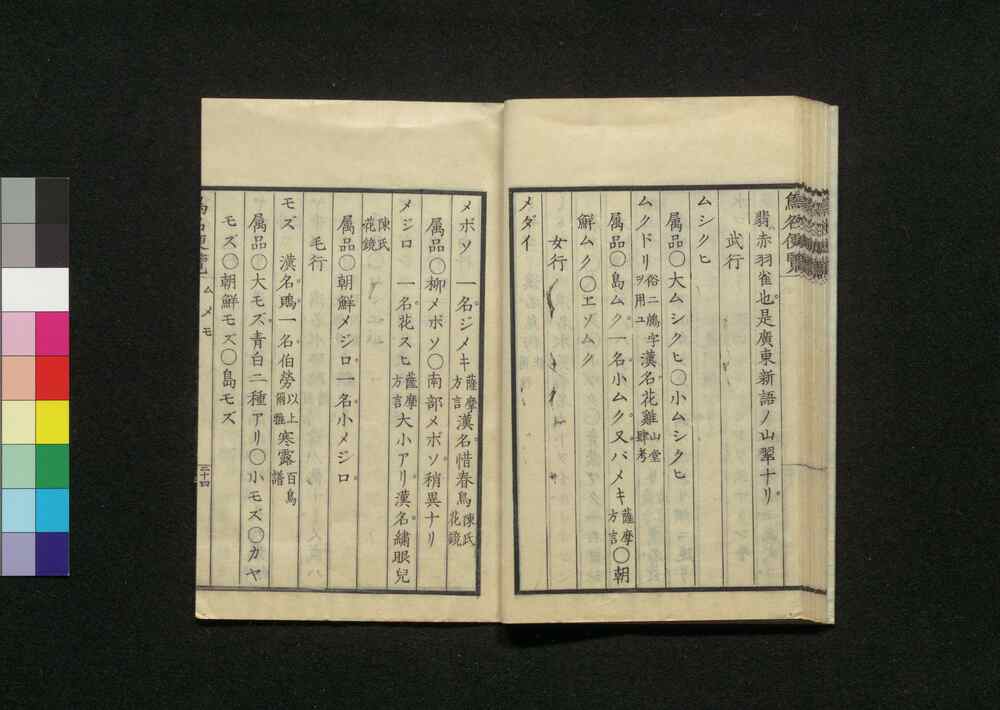 翡赤羽雀也是廣東新語ノ山翠ナリ
武行
ムシクヒ
属品〇大ムシクヒ〇小ムシクヒ
ムクドリ 俗ニ鵤字ヲ用ユ 漢名花雞 山堂肆考
属品〇島ムク一名小ムク又バメキ 薩摩方言〇朝
鮮ムク〇ヱゾムク
女行
メダイ
メボソ 一名ジメキ 薩摩方言 漢名惜春鳥 陳氏花鏡
属品〇柳メボソ〇南部メボソ稍異ナリ
メジロ 一名花スヒ 薩摩方言 大小アリ漢名繍眼兒
陳氏花鏡
属品〇朝鮮メジロ一名小メジロ
毛行
モズ 漢名鴂一名伯勞 以上爾雅 寒露 百鳥譜
属品〇大モズ青白二種アリ〇小モズ〇カヤ
モズ〇朝鮮モズ〇島モズ
ムメモ
三十四